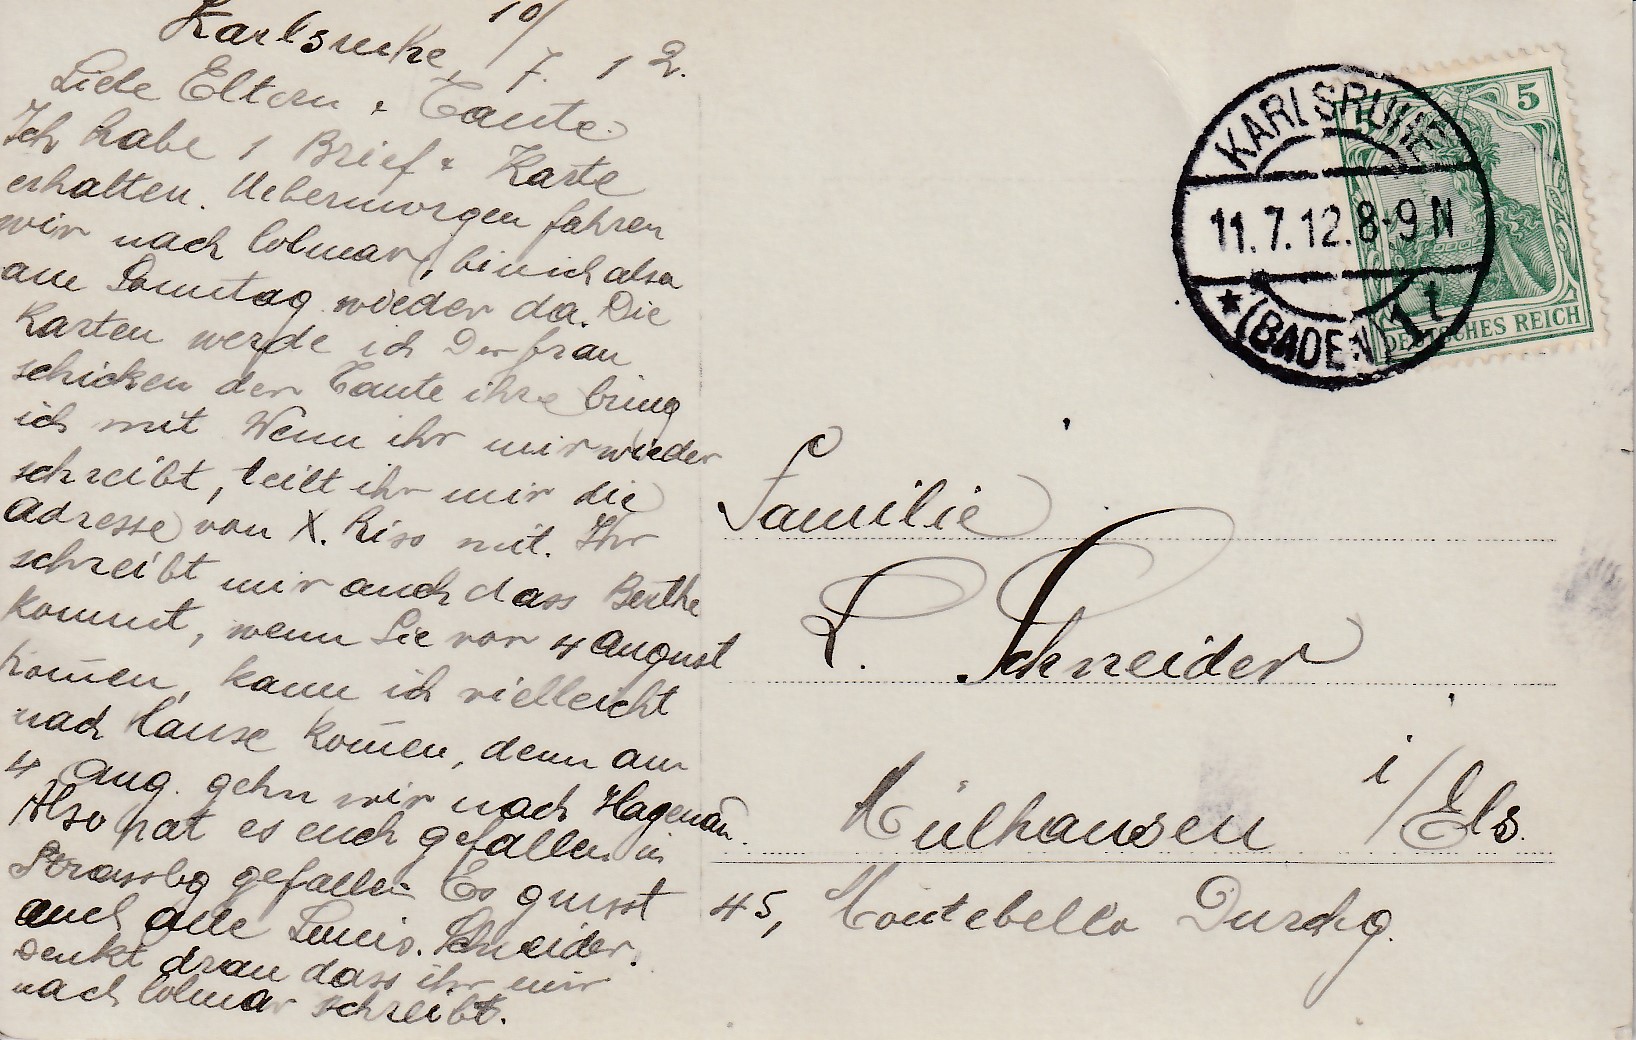 Karlsruhe, 10/7. 12.
Liebe Eltern & Tante.
Ich habe 1 Brief & Karte
erhalten. Uebermorgen fahren
wir nach Colmar, bin ich also
am Sonntag wieder da. Die
Karten werde ich Der frau
schicken der Tante ihre bring
ich mit Wenn ihr mir wieder
schreibt, teilt ihr mir die
Adresse von X. Riss mit. Ihr
schreibt mir auch dass Berthe
kommt, wenn Sie vor 4 August
kom̄en, kann ich vielleicht
nach Hause kom̄en, denn am
4 Aug. gehn wir nach Hagenau.
Also hat es euch gefallen in
Strassbg gefallen Es grüsst
euch alle Louis. Schneider.
denkt dran dass ihr mir
nach Colmar schreibt.
KARLSRUHE
11.7.12.8-9 N
★ (BADEN) 1 t
5
DEUTSCHES REICH
Familie
L. Schneider
Mülhausen i/Els.
45, Montebello Durchg.